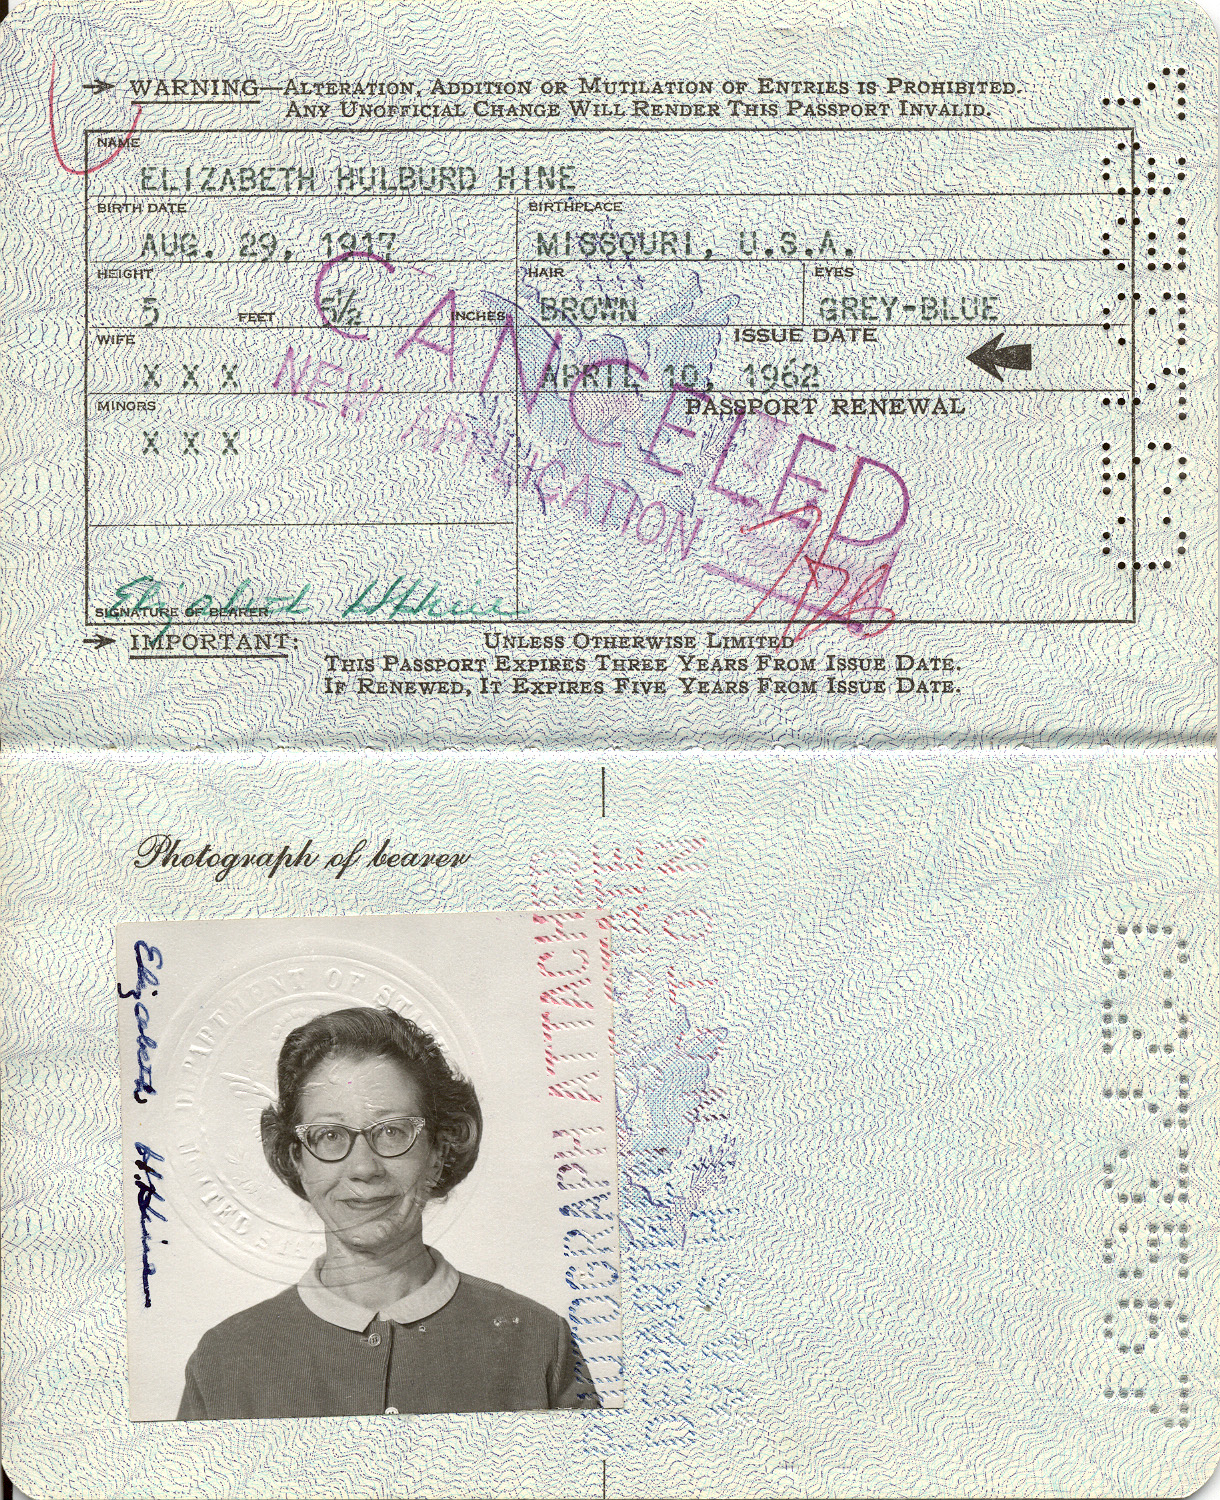 WARNING—ALTERATION, ADDITION OR MUTILATION OF ENTRIES IS PROHIBITED.
ANY UNOFFICIAL CHANGE WILL RENDER THIS PASSPORT INVALID.
NAME
ELIZABETH HULBURD HINE
BIRTH DATE BIRTHPLACE
AUG. 29, 1917 MISSOURI, U.S.A.
HEIGHT HAIR EYES
5 FEET 5½ INCHES BROWN GREY-BLUE
WIFE ISSUE DATE
X X X APRIL 19, 1962
MINORS PASSPORT RENEWAL
X X X
CANCELED
NEW APPLICATION
SIGNATURE OF BEARER
Elizabeth H Hine
IMPORTANT: UNLESS OTHERWISE LIMITED
THIS PASSPORT EXPIRES THREE YEARS FROM ISSUE DATE.
IF RENEWED, IT EXPIRES FIVE YEARS FROM ISSUE DATE.
Photograph of bearer
Elizabeth H. Hine
DEPARTMENT OF STATE
UNITED
PHOTOGRAPH ATTACHED